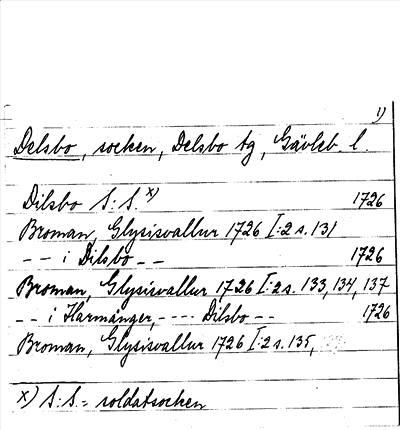 1)
Delsbo, socken, Delsbo tg, Gävleb. l.
Dilsbo S:S. x) 1726
Broman, Glysisvallur 1726 I:2 s. 131
-- i Dilsbo -- 1726
Broman, Glysisvallur 1726 I:2 s. 133, 134, 137
-- i Harmånger, ---- Dilsbo -- 1726
Broman, Glysisvallur 1726 I:2 s. 135,
x) S:S. = soldatsocken